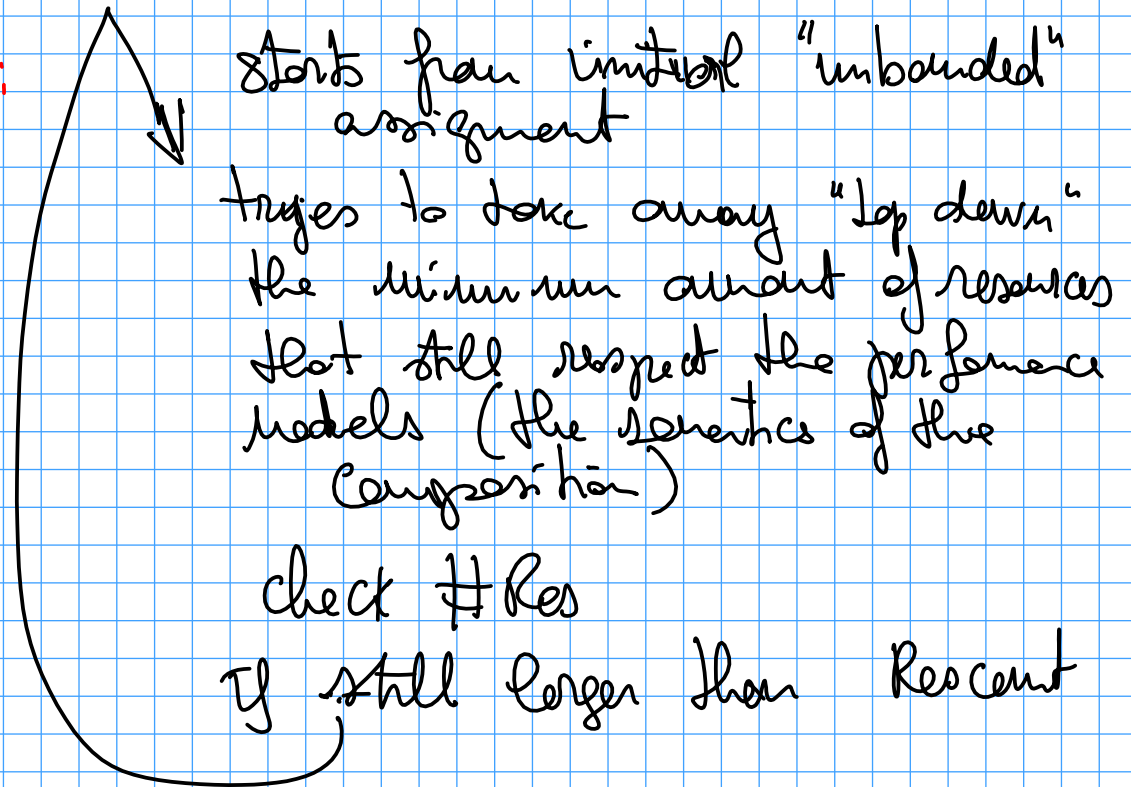 starts from initial "unbounded"
assigment
tryes to take away "top down"
the minimum amount of resources
that still respect the performance
models (the semantics of the
composition)
check #Res
If still larger than Rescount